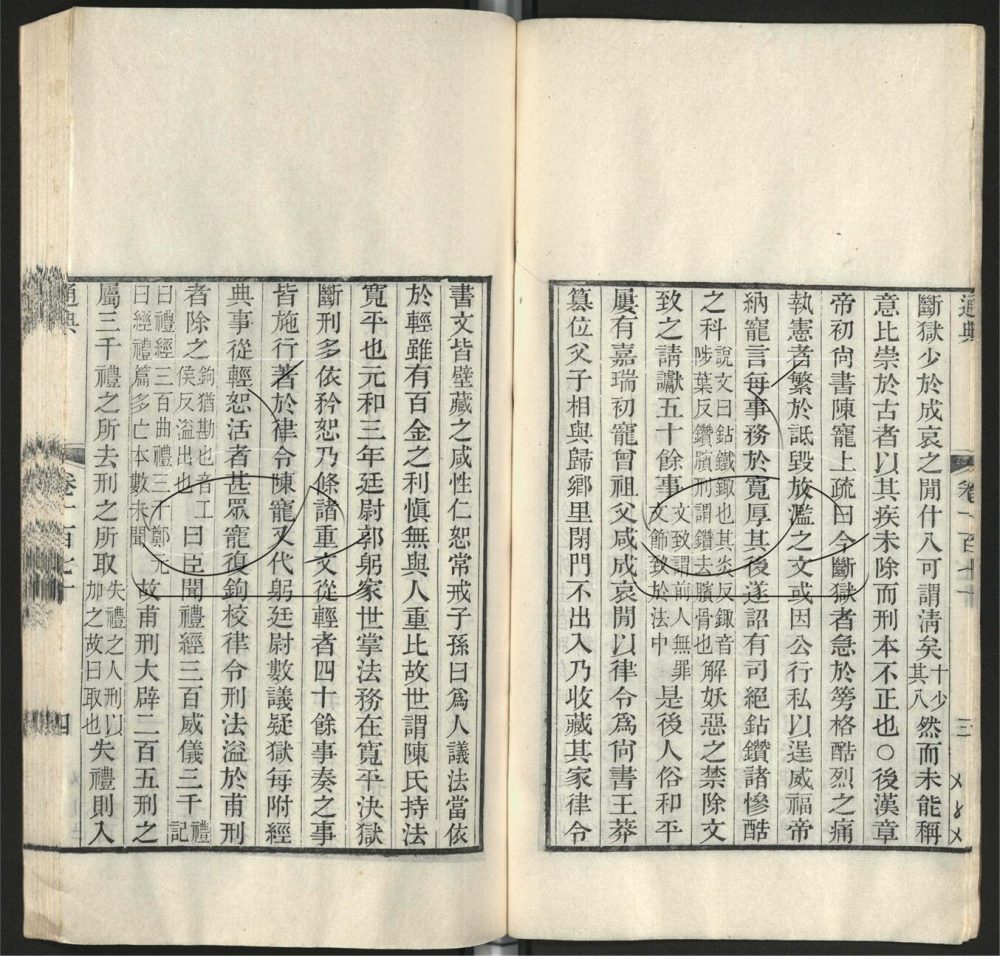 通典
卷一百七十
三
斷獄少於成哀之閒什八可謂淸矣十少其八然而未能稱
意比崇於古者以其疾未除而刑本不正也○後漢章
帝初尙書陳寵上疏曰今斷獄者急於篣格酷烈之痛
執憲者繁於詆毀放濫之文或因公行私以逞威福帝
納寵言每事務於寬厚其後遂詔有司絕鉆鑽諸慘酷
之科說文曰鉆鐵鋷也其炎反鋷音陟葉反鑽臏刑謂鑽去臏骨也解妖惡之禁除文
致之請讞五十餘事文致謂前人無罪文飾致於法中是後人俗和平
屢有嘉瑞初寵曾祖父咸成哀閒以律令爲尙書王莽
篡位父子相與歸鄉里閉門不出入乃收藏其家律令
書文皆壁藏之咸性仁恕常戒子孫曰爲人議法當依
於輕雖有百金之利愼無與人重比故世謂陳氏持法
寬平也元和三年廷尉郭躬家世掌法務在寬平決獄
斷刑多依矜恕乃條諸重文從輕者四十餘事奏之事
皆施行著於律令陳寵又代躬廷尉數議疑獄每附經
典事從輕恕活者甚眾寵復鉤校律令刑法溢於甫刑
者除之鉤猶勘也音工侯反溢出也曰臣聞禮經三百威儀三千禮記
曰禮經三百曲禮三千鄭元曰經禮篇多亡本數未聞故甫刑大辟二百五刑之
屬三千禮之所去刑之所取失禮之人刑以加之故曰取也失禮則入
通典
卷一百七十
四